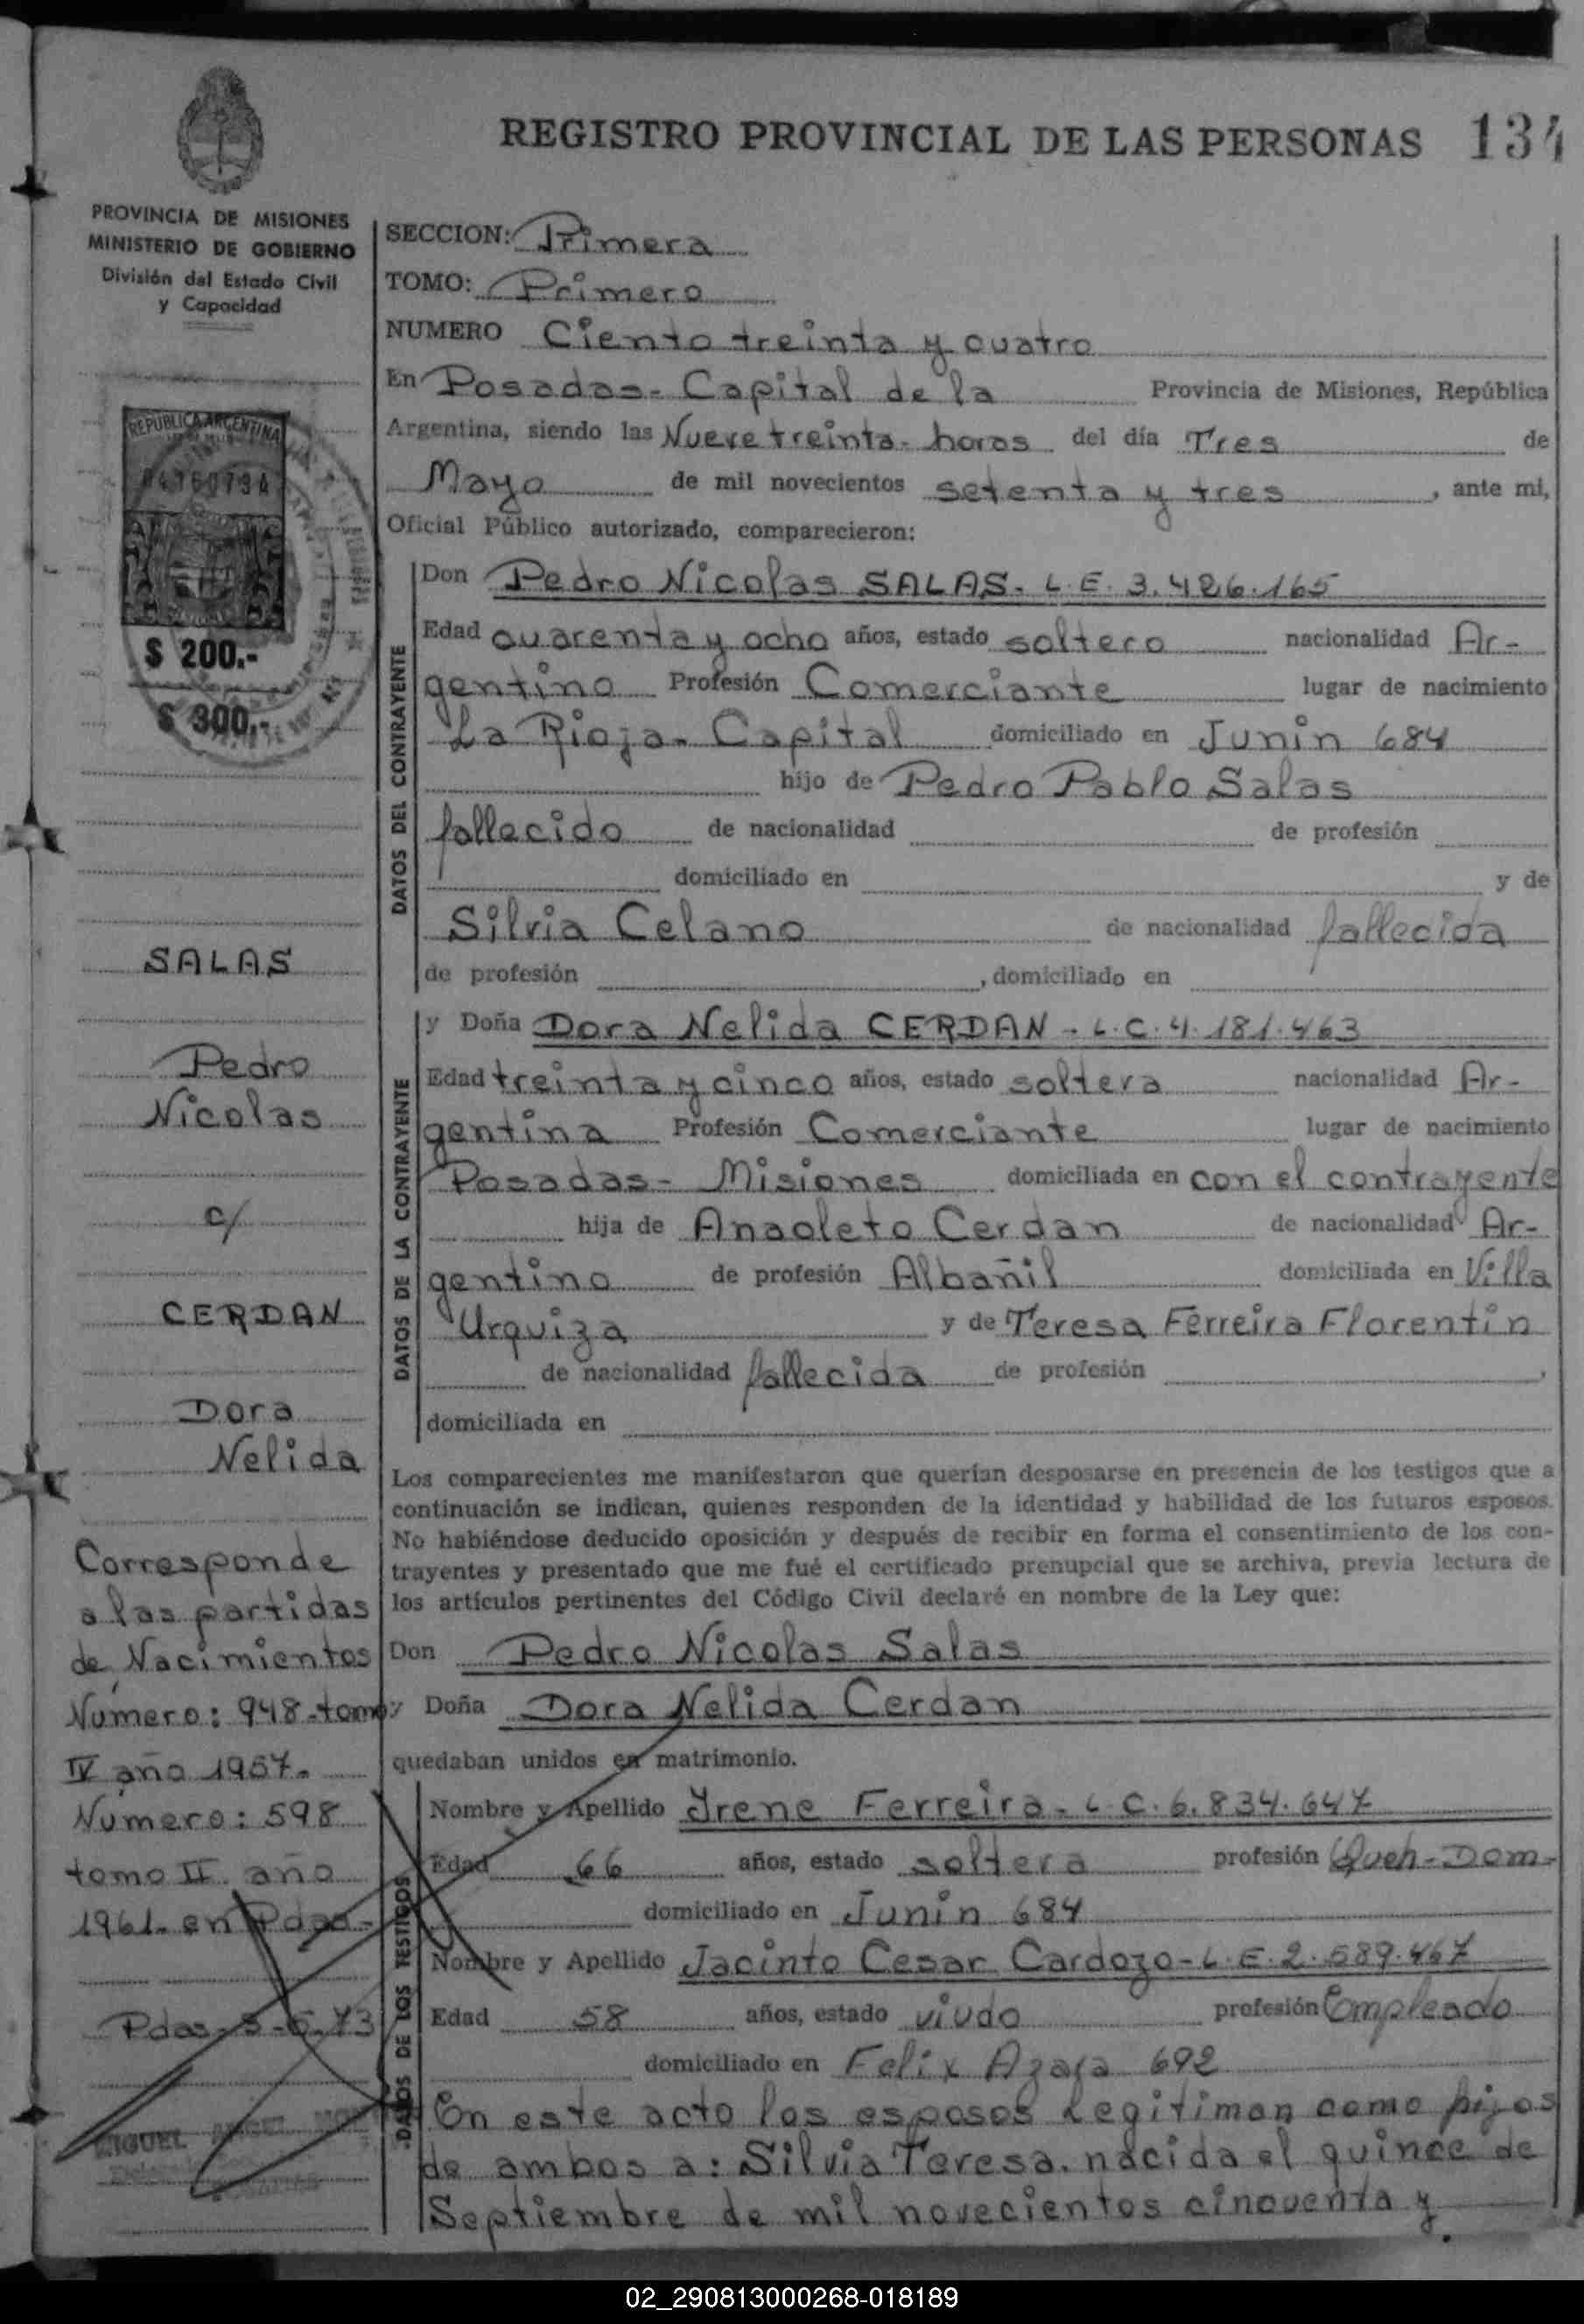 REGISTRO PROVINCIAL DE LAS PERSONAS 134
PROVINCIA DE MISIONES
MINISTERIO DE GOBIERNO
División del Estado Civil
y Capacidad
REPUBLICA ARGENTINA
$ 200.-
$ 300.-
SALAS
Pedro
Nicolas
c/
CERDAN
Dora
Nelida
Corresponde
a las partidas
de Nacimientos
Número: 948-tomo
IV año 1957.
Número: 598
tomo II. año
1961. en Pdas-
Pdas-3-5-73
MIGUEL ANGEL
SECCION: Primera
TOMO: Primero
NUMERO Ciento treinta y cuatro
En Posadas- Capital de la Provincia de Misiones, República
Argentina, siendo las Nueve treinta- horas del día Tres de
Mayo de mil novecientos setenta y tres, ante mi,
Oficial Público autorizado, comparecieron:
DATOS DEL CONTRAYENTE
Don Pedro Nicolas SALAS- L.E. 3.426.165
Edad cuarenta y ocho años, estado soltero nacionalidad Ar-
gentino Profesión Comerciante lugar de nacimiento
La Rioja- Capital domiciliado en Junin 684
hijo de Pedro Pablo Salas
fallecido de nacionalidad de profesión
domiciliado en y de
Silvia Celano de nacionalidad fallecida
de profesión , domiciliado en
DATOS DE LA CONTRAYENTE
y Doña Dora Nelida CERDAN - L.C. 4.181.463
Edad treinta y cinco años, estado soltera nacionalidad Ar-
gentina Profesión Comerciante lugar de nacimiento
Posadas- Misiones domiciliada en con el contrayente
hija de Anacleto Cerdan de nacionalidad Ar-
gentino de profesión Albañil domiciliada en Villa
Urquiza y de Teresa Ferreira Florentin
de nacionalidad fallecida de profesión ,
domiciliada en
Los comparecientes me manifestaron que querían desposarse en presencia de los testigos que a
continuación se indican, quienes responden de la identidad y habilidad de los futuros esposos.
No habiéndose deducido oposición y después de recibir en forma el consentimiento de los con-
trayentes y presentado que me fué el certificado prenupcial que se archiva, previa lectura de
los artículos pertinentes del Código Civil declaré en nombre de la Ley que:
Don Pedro Nicolas Salas
y Doña Dora Nelida Cerdan
quedaban unidos en matrimonio.
DATOS DE LOS TESTIGOS
Nombre y Apellido Irene Ferreira- L.C. 6.834.647
Edad 66 años, estado soltera profesión Queh-Dom-
domiciliado en Junin 684
Nombre y Apellido Jacinto Cesar Cardozo- L.E. 2.589.467
Edad 58 años, estado viudo profesión Empleado
domiciliado en Felix Azara 692
En este acto los esposos Legitiman como hijos
de ambos a: Silvia Teresa. nacida el quince de
Septiembre de mil novecientos cincuenta y
02_290813000268-018189